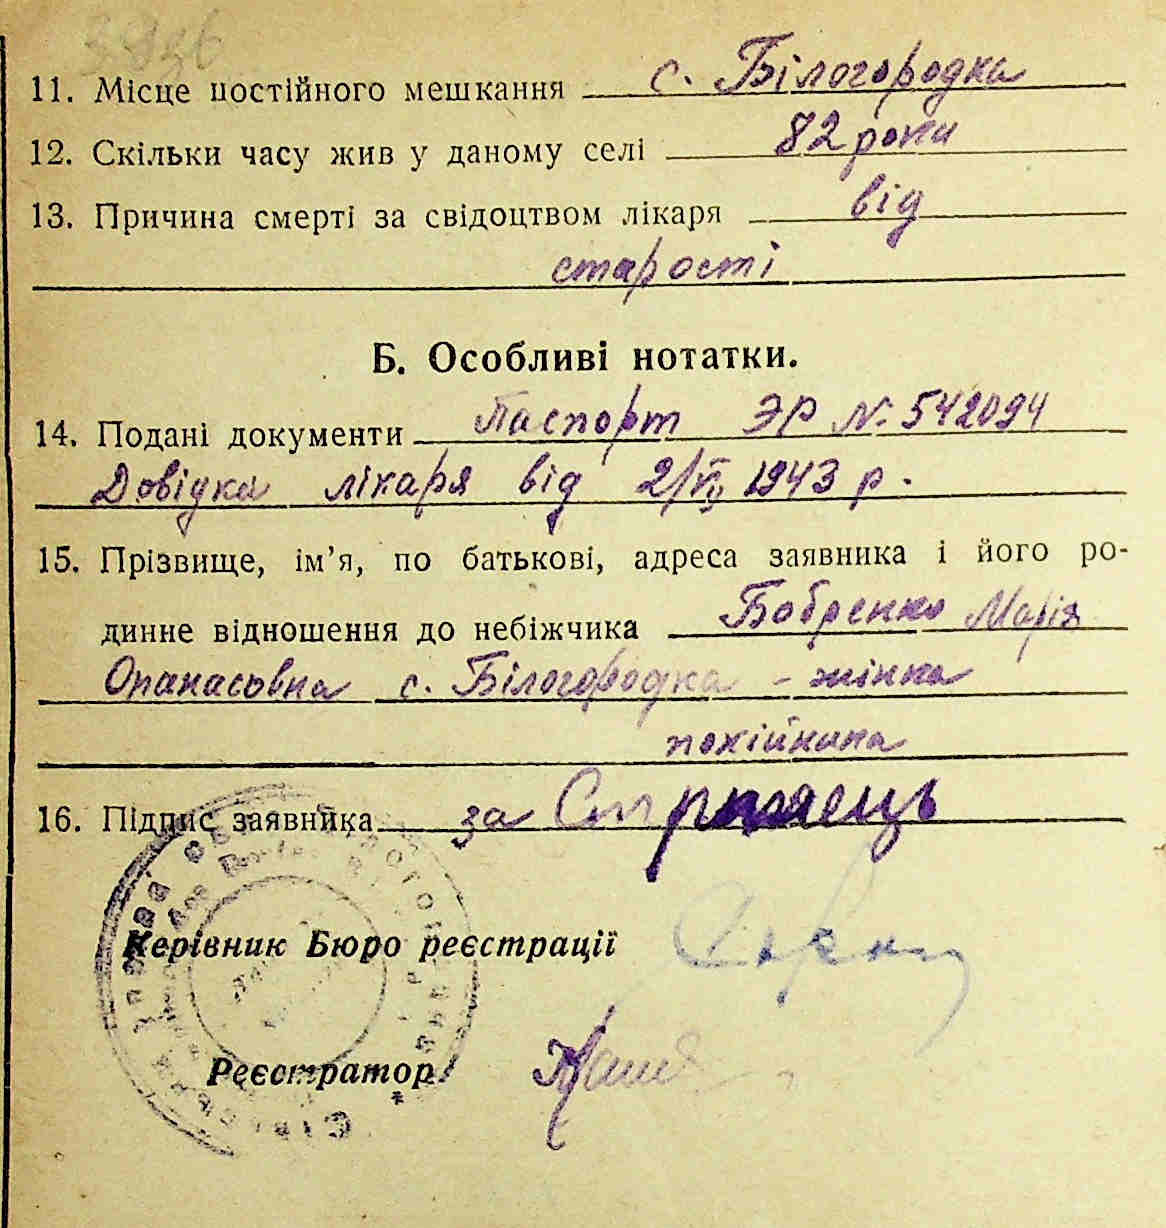 11. Місце постійного мешкання с. Білогородка
12. Скільки часу жив у даному селі 82 роки
13. Причина смерті за свідоцтвом лікаря від
старості
Б. Особливі нотатки.
14. Подані документи Паспорт ЭР №. 542094
Довідка лікаря від 1943 р.
15. Прізвище, ім’я, по батькові, адреса заявника і його ро-
динне відношення до небіжчика Бобренко Марія
Опанасовна с. Білогородка - жінка
покійника
16. Підпис заявника за
Керівник Бюро реєстрації
Реєстратор